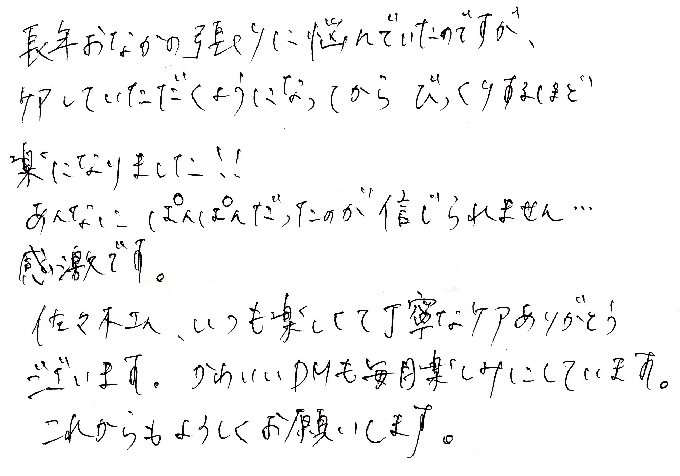 長年おなかの張りに悩んでいたのですが、
ケアしていただくようになってから びっくりするほど
楽になりました!!
あんなに ぱんぱんだったのが 信じられません…
感激です。
佐々木さん、いつも楽しくて丁寧なケアありがとう
ございます。かわいいDMも毎月楽しみにしています。
これからもよろしくお願いします。